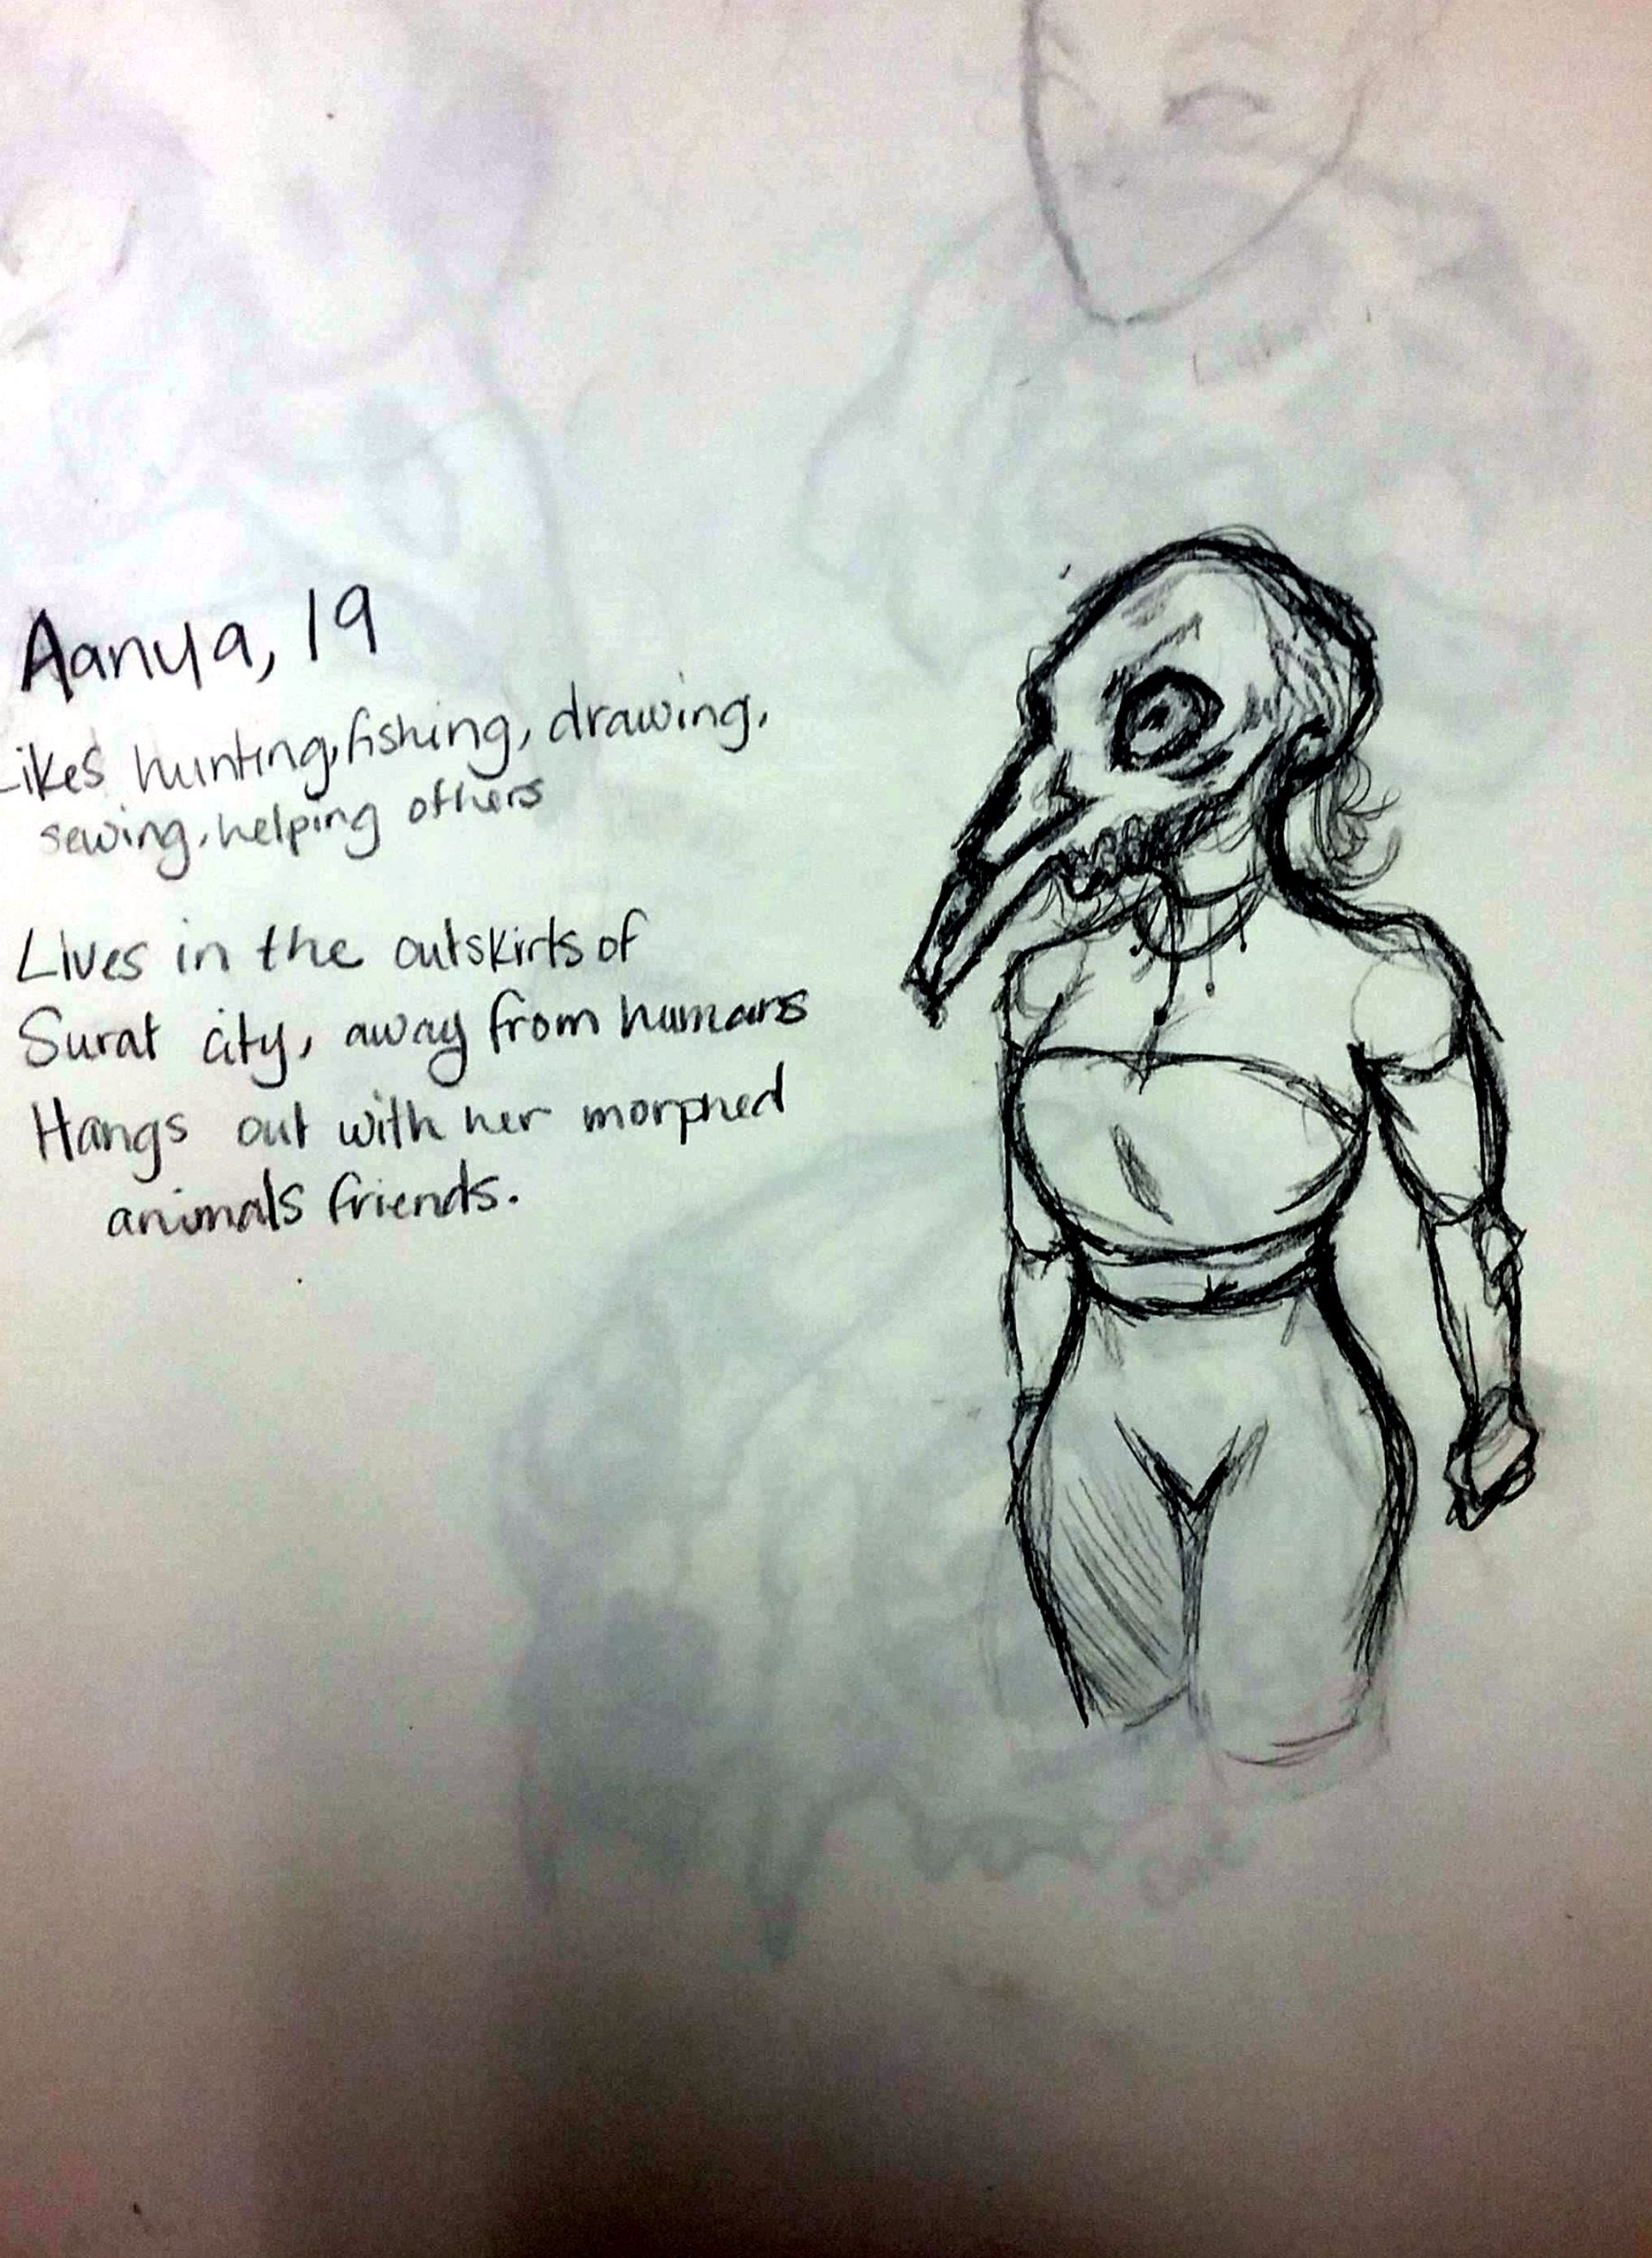 Aanya, 19
Likes hunting, fishing, drawing,
sewing, helping others
Lives in the outskirts of
Surat city, away from humans
Hangs out with her morphed
animals friends.